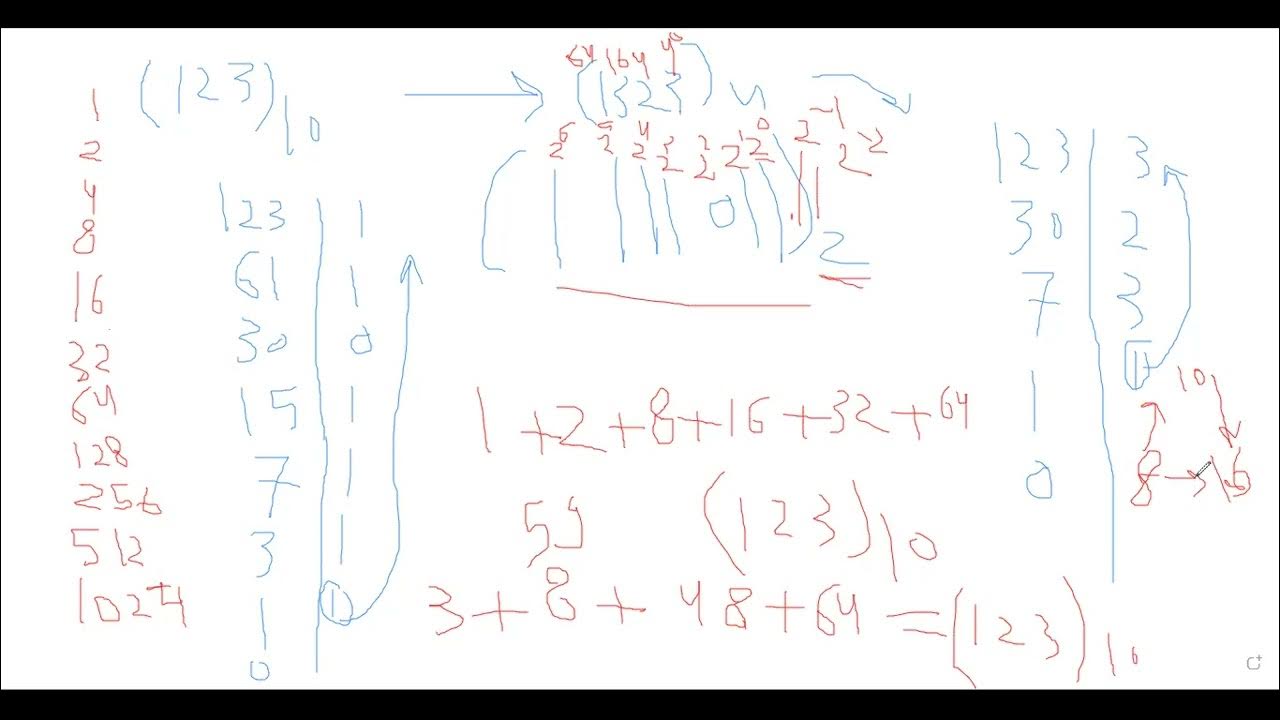 1
2
4
8
16
32
64
128
256
512
1024
(123)10
123 1
61 1
30 0
15 1
7 1
3 1
1 1
0
64 16 4 4⁰
(1323)4
2⁶ 2⁵ 2⁴ 2³ 2² 2¹ 2⁰ 2⁻¹ 2⁻²
0
2
1+2+8+16+32+64
59 (123)10
3+8+48+64=(123)10
123 3
30 2
7 3
1 1
0
10
8→16